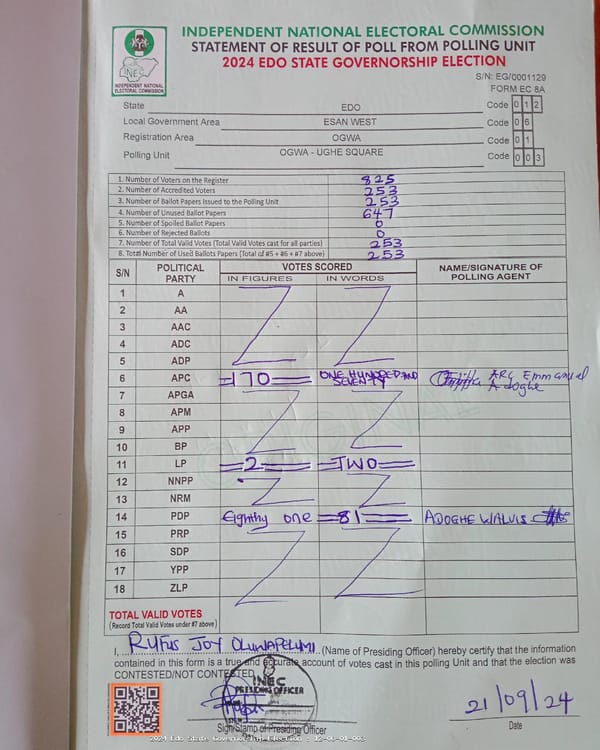 INDEPENDENT NATIONAL ELECTORAL COMMISSION
STATEMENT OF RESULT OF POLL FROM POLLING UNIT
2024 EDO STATE GOVERNORSHIP ELECTION
INEC
INDEPENDENT NATIONAL
ELECTORAL COMMISSION
S/N: EG/0001129
FORM EC 8A
State EDO Code 0 1 2
Local Government Area ESAN WEST Code 0 6
Registration Area OGWA Code 0 1
Polling Unit OGWA - UGHE SQUARE Code 0 0 3
1. Number of Voters on the Register 825
2. Number of Accredited Voters 253
3. Number of Ballot Papers Issued to the Polling Unit 253
4. Number of Unused Ballot Papers 647
5. Number of Spoiled Ballot Papers 0
6. Number of Rejected Ballots 0
7. Number of Total Valid Votes (Total Valid Votes cast for all parties) 253
8. Total Number of Used Ballots Papers (Total of #5 + #6 + #7 above) 253
S/N POLITICAL PARTY VOTES SCORED NAME/SIGNATURE OF POLLING AGENT
IN FIGURES IN WORDS
1 A
2 AA
3 AAC
4 ADC
5 ADP
6 APC 170 ONE HUNDRED AND SEVENTY ARC Emmanuel Adoghe
7 APGA
8 APM
9 APP
10 BP
11 LP 2 TWO
12 NNPP
13 NRM
14 PDP Eighty one 81 ADOGHE WALVIS
15 PRP
16 SDP
17 YPP
18 ZLP
TOTAL VALID VOTES
(Record Total Valid Votes under #7 above)
I, RUFUS JOY OLUWAPELUMI (Name of Presiding Officer) hereby certify that the information
contained in this form is a true and accurate account of votes cast in this polling Unit and that the election was
CONTESTED/NOT CONTESTED
INEC
PRESIDING OFFICER
21/09/24
Sign/Stamp of Presiding Officer Date